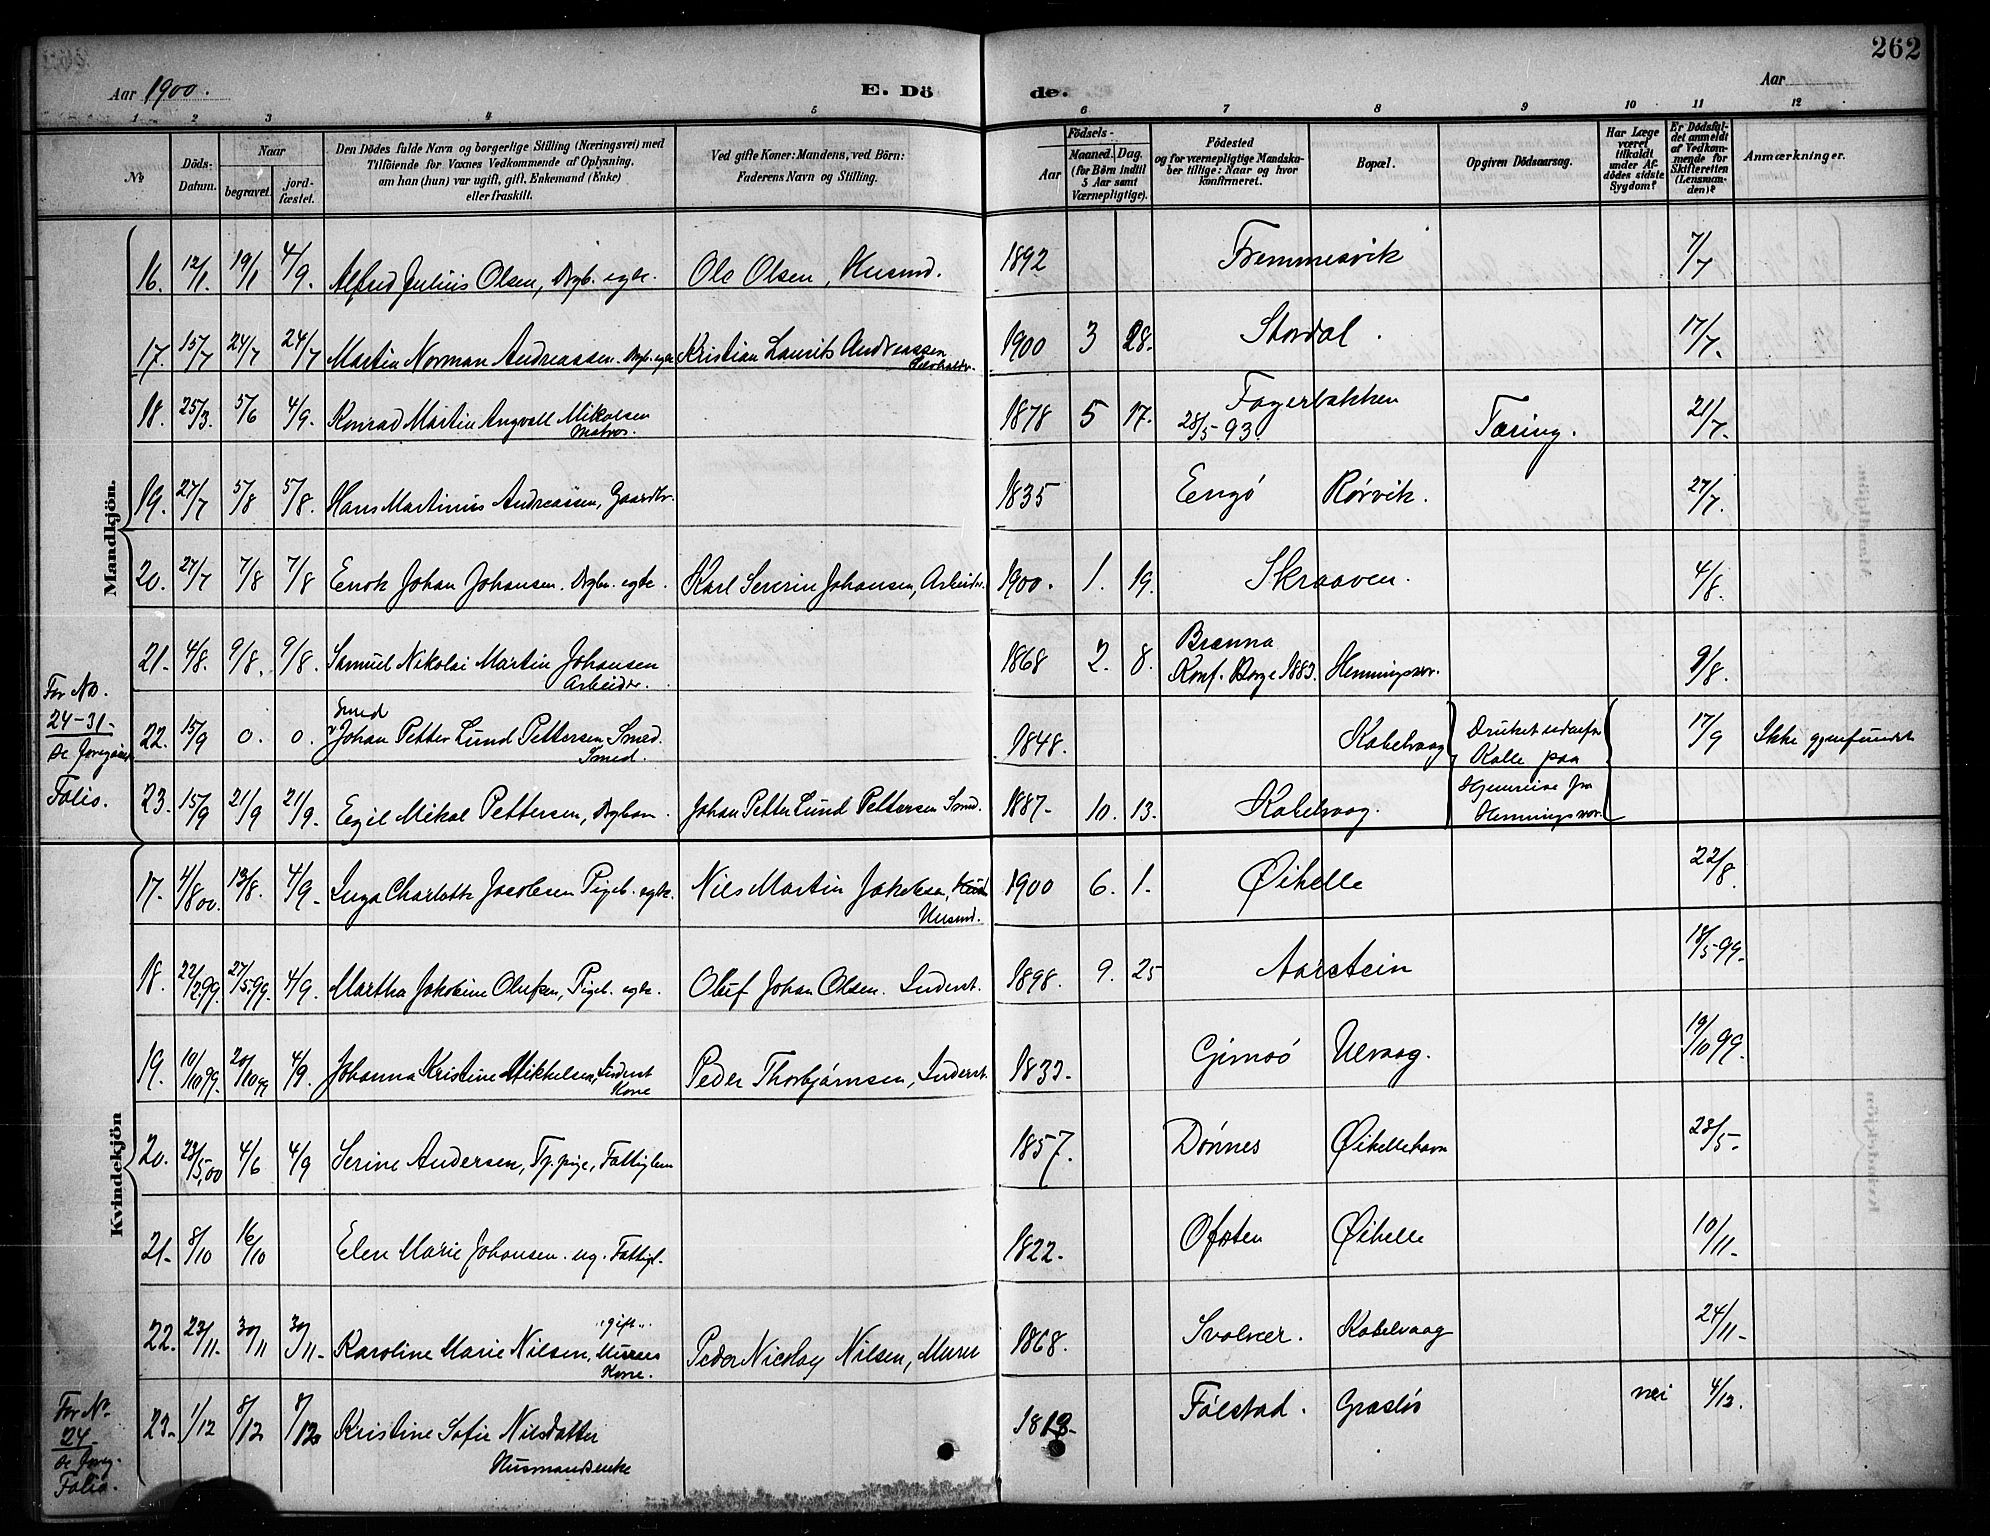 262
Aar 1900.
E. Dö de.
Aar
1 2 3 4 5 6 7 8 9 10 11 12
No
Döds-Datum.
Naar
begravet.
jord-fæstet.
Den Dödes fulde Navn og borgerlige Stilling (Næringsvei) med
Tilföiende for Voxnes Vedkommende af Oplysning,
om han (hun) var ugift, gift, Enkemand (Enke)
eller fraskilt.
Ved gifte Koner: Mandens, ved Börn:
Faderens Navn og Stilling.
Födsels-
Aar
Maaned. Dag.
(for Börn indtil
5 Aar samt
Værnepligtige).
Födested
og for værnepligtige Mandska-
ber tillige: Naar og hvor
konfirmeret.
Bopæl.
Opgiven Dödsaarsag.
Har Læge
været
tilkaldt
under Af-
dödes sidste
Sygdom?
Er Dödsfal-
det anmeldt
af Vedkom-
mende for
Skifteretten
(Lensman-
den)?
Anmærkninger.
Mandkjön.
16. 12/1. 19/1 4/9. Alfred Julius Olsen, Dgb. egte. Ole Olsen, Husmd. 1892 Fremmesvik 7/7
17. 15/7 24/7 24/7 Martin Norman Andreassen. Dgb. egte Kristian Laurits Andreassen 1900 3 28. Stordal. 17/7.
18. 25/3. 5/6 4/9. Konrad Martin Angvall Mikalsen Matros. 1878 5 17. Fagerbakken 28/5-93. Tæring. 21/7.
19. 27/7 5/8 5/8. Hans Martinus Andreassen, Gaardbr. 1835 Engö Rörvik. 27/7.
20. 27/7 7/8 7/8 Enok Johan Johansen. Dgbn. egte. Karl Severin Johansen, Arbeider. 1900. 1. 19. Skraaven. 4/8.
21. 4/8. 9/8. 9/8. Samuel Nikolai Martin Johansen Arbeider. 1868 2. 8. Brenna Konf. Borge 1883. Henningsvær. 9/8.
For No.
24-31-
se foregaaende
Folio.
22. 15/9 0. 0. Smed Johan Petter Lund Pettersen Smed. Smed. 1848. Kabelvaag Druknet sidenfor Kalle paa 17/9 Ikke gjenfundet
23. 15/9 21/9 21/9. Egil Mikal Pettersen, Dgbarn. Johan Petter Lund Pettersen Smed. 1887- 10. 13. Kabelvaag. Hjemreise fra Henningsvær.
Kvindekjön
17. 4/8 00. 13/8. 4/9. Inga Charlotte Jacobsen Pigeb. egte. Nils Martin Jakobsen, Husmd. 1900 6. 1. Øihelle 22/8.
18. 22/2 99. 27/5 99. 4/9. Martha Jakobine Olufsen, Pigeb. egte. Oluf Johan Olsen. Inderst. 1898. 9. 25 Aarstein 18/5-99.
19. 10/10 99. 20/10 99 4/9. Johanna Kristine Mikkelsen, Inderst Kone Peder Thorbjørnsen, Inderst. 1833. Gimsö Ulvaag. 19/10 99.
20. 28/5,00 4/6 4/9 Serine Andersen, Tj. pige, Fattiglem 1857. Dönnes Øihellehavn 28/5-
21. 8/10 16/10 Elen Marie Johansen. ug. Fattigl. 1822. Ofoten Øihelle 10/11-
22. 23/11. 30/11 30/11. Karoline Marie Nilsen, gift Murers Kone. Peder Nicolay Nilsen, Murer 1868. Svolvær. Kabelvaag 24/11-
For No.
24-
se foreg.
Folio.
23. 1/12 8/12 8/12 Kristine Sofie Nilsdatter Husmandsenke 1813. Fölstad. Grasløs nei 4/12.